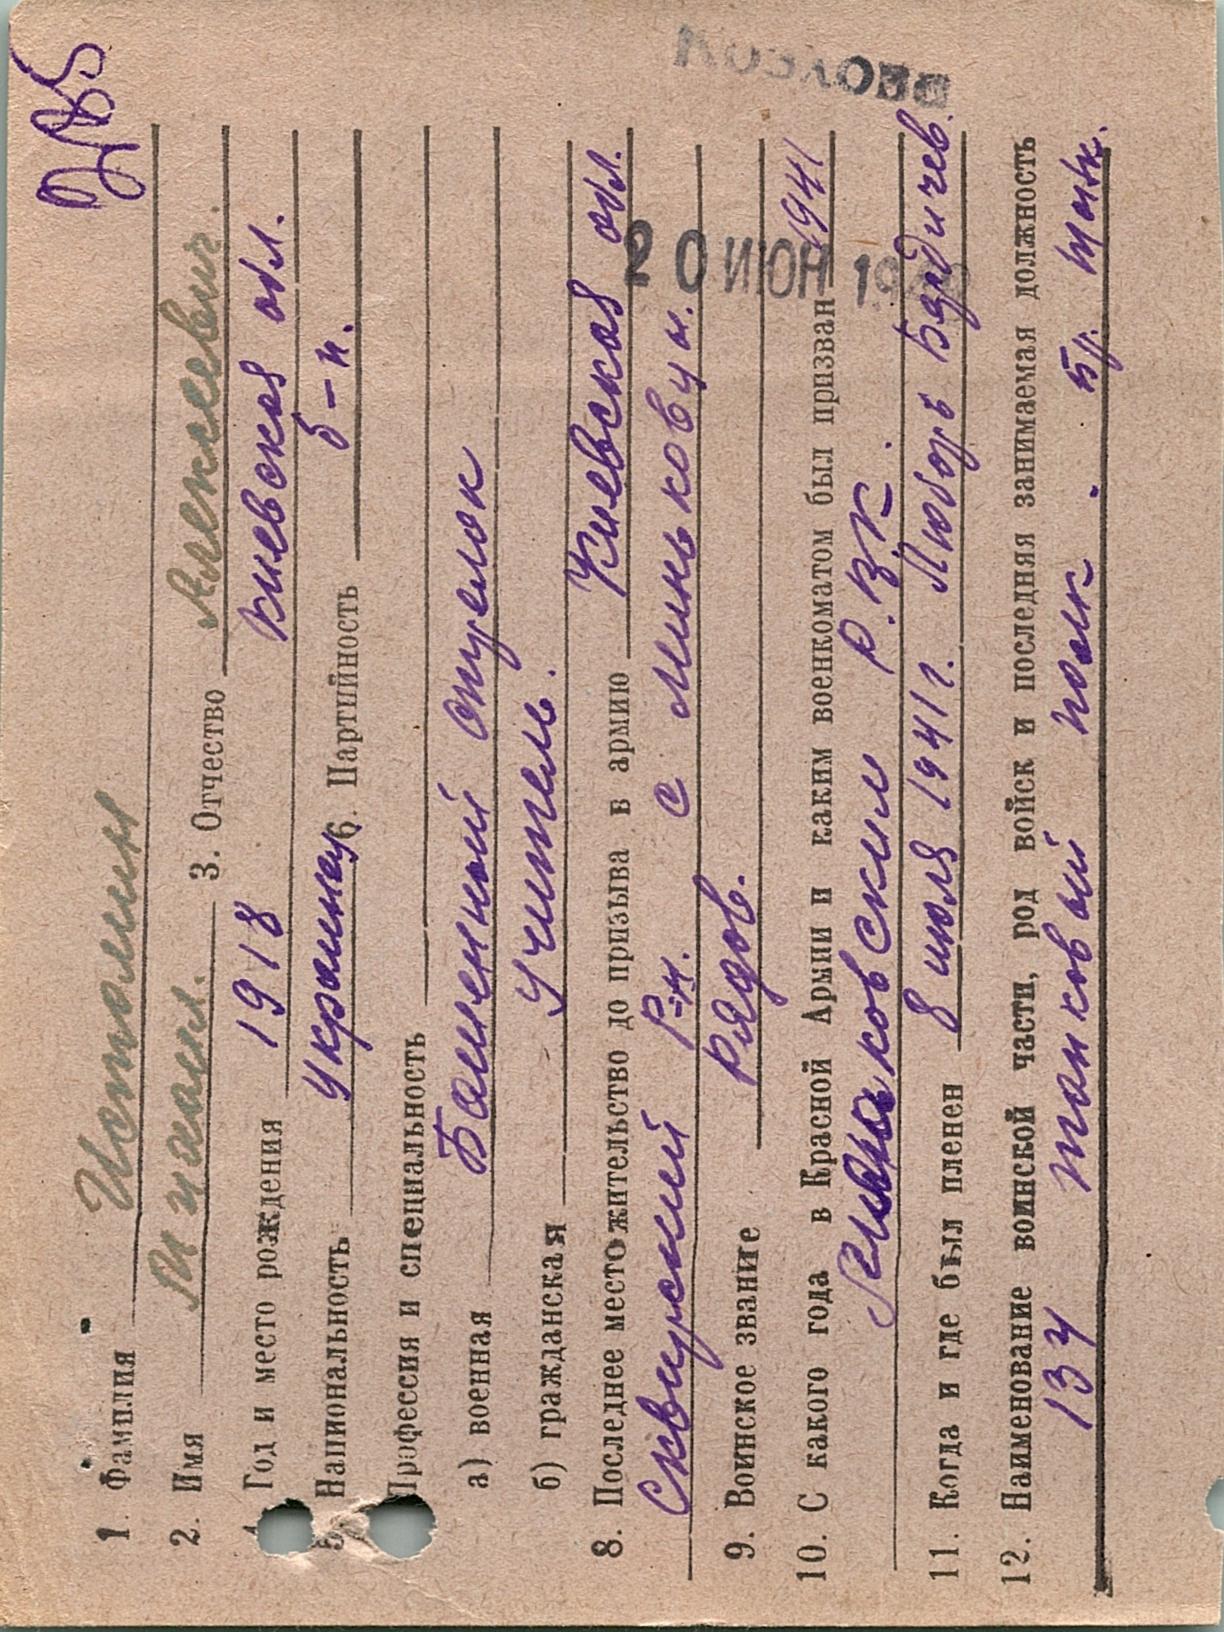 1. Фамилия Истомин
2. Имя Михаил. 3. Отчество Алексеевич.
4. Год и место рождения 1918 Киевская обл.
5. Национальность украинец 6. Партийность б-п.
Профессия и специальность
а) военная Башенный стрелок
б) гражданская учитель.
8. Последнее местожительство до призыва в армию Киевская обл.
Сквирский р-н. с Миньковцы.
9. Воинское звание Рядов.
10. С какого года в Красной Армии и каким военкоматом был призван 1941
Р.В.К.
11. Когда и где был пленен 8 июля 1941 г. Бердичев.
12. Наименование воинской части, род войск и последняя занимаемая должность
134 танковый полк.
20 ИЮН 194